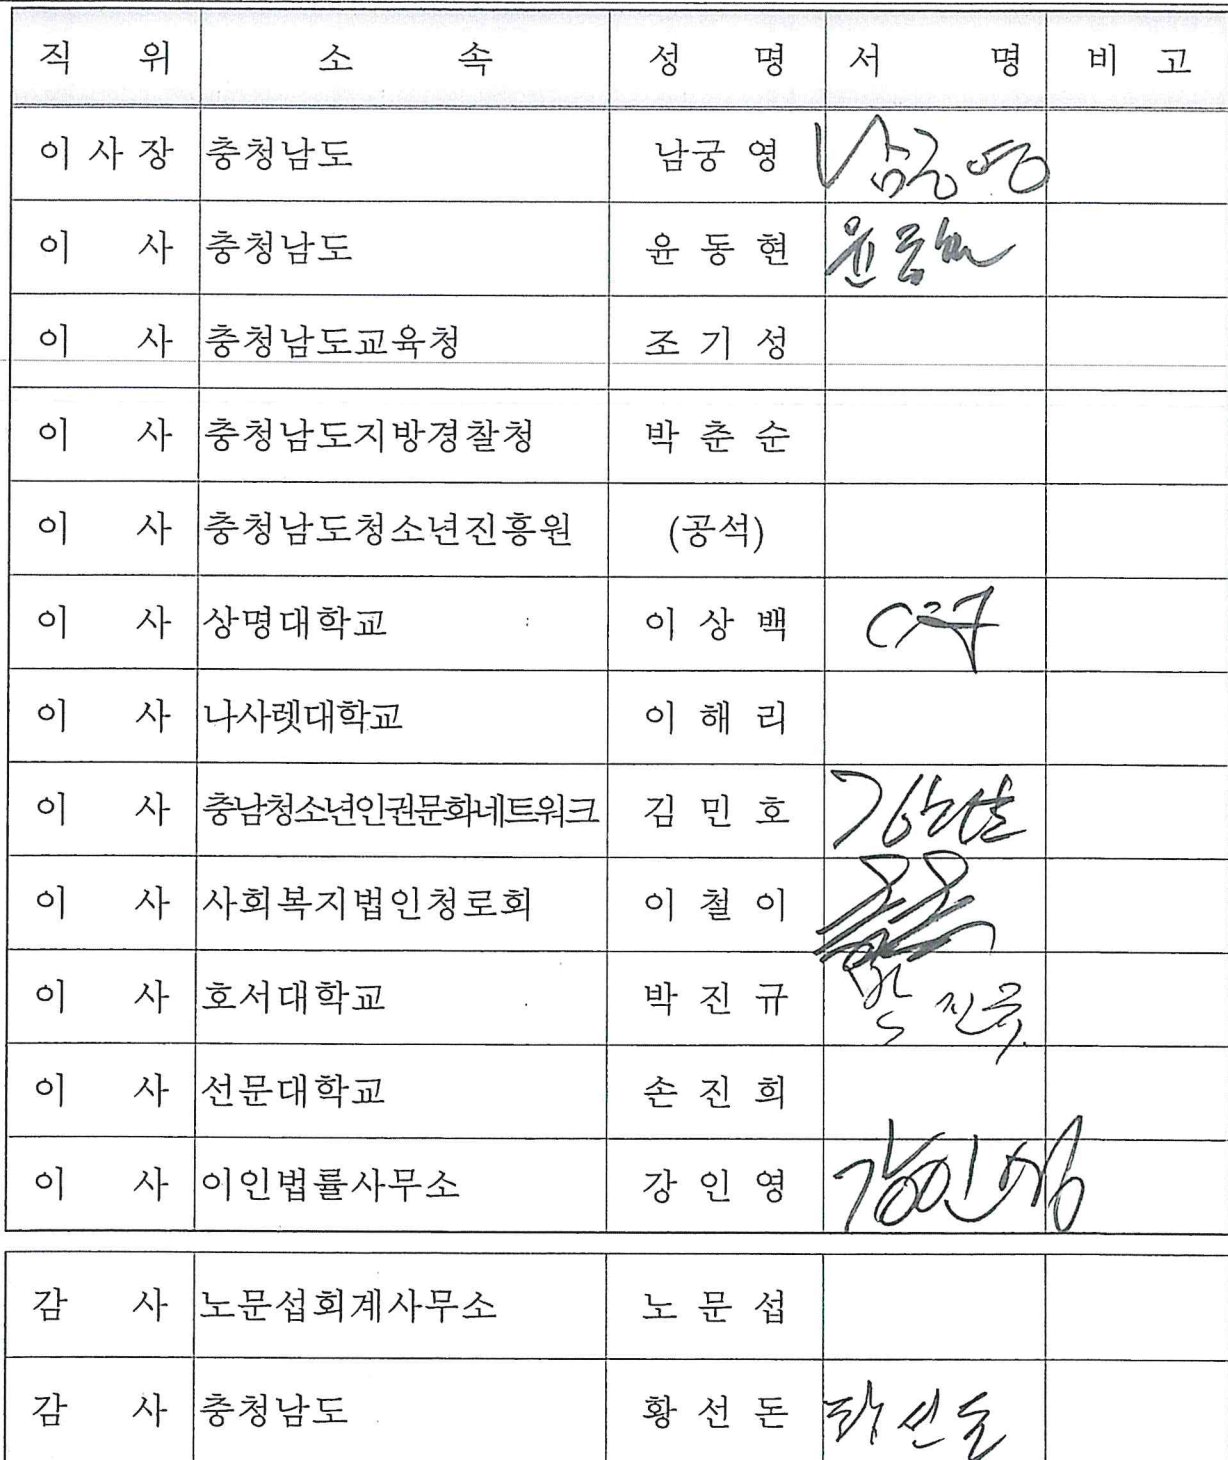 직 위 소 속 성 명 서 명 비 고
이 사 장 충청남도 남궁 영 남궁영
이 사 충청남도 윤 동 현 윤동현
이 사 충청남도교육청 조 기 성
이 사 충청남도지방경찰청 박 춘 순
이 사 충청남도청소년진흥원 (공석)
이 사 상명대학교 이 상 백
이 사 나사렛대학교 이 해 리
이 사 충남청소년인권문화네트워크 김 민 호
이 사 사회복지법인청로회 이 철 이
이 사 호서대학교 박 진 규 박진규
이 사 선문대학교 손 진 희
이 사 이인법률사무소 강 인 영 강인영
감 사 노문섭회계사무소 노 문 섭
감 사 충청남도 황 선 돈 황선돈